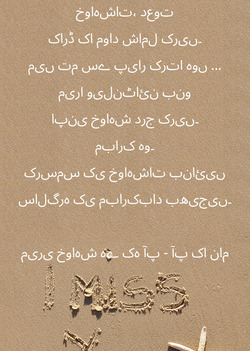 خواہشات، دعوت
کارڈ کا مواد شامل کریں۔
میں تم سے پیار کرتا ہوں ...
میرا ویلنٹائن بنو
اپنی خواہش درج کریں۔
مبارک ہو۔
کرسمس کی خواہشات بنائیں
سالگرہ کی مبارکباد بھیجیں۔
میری خواہش ہے کہ آپ - آپ کا نام
I MISS
Y